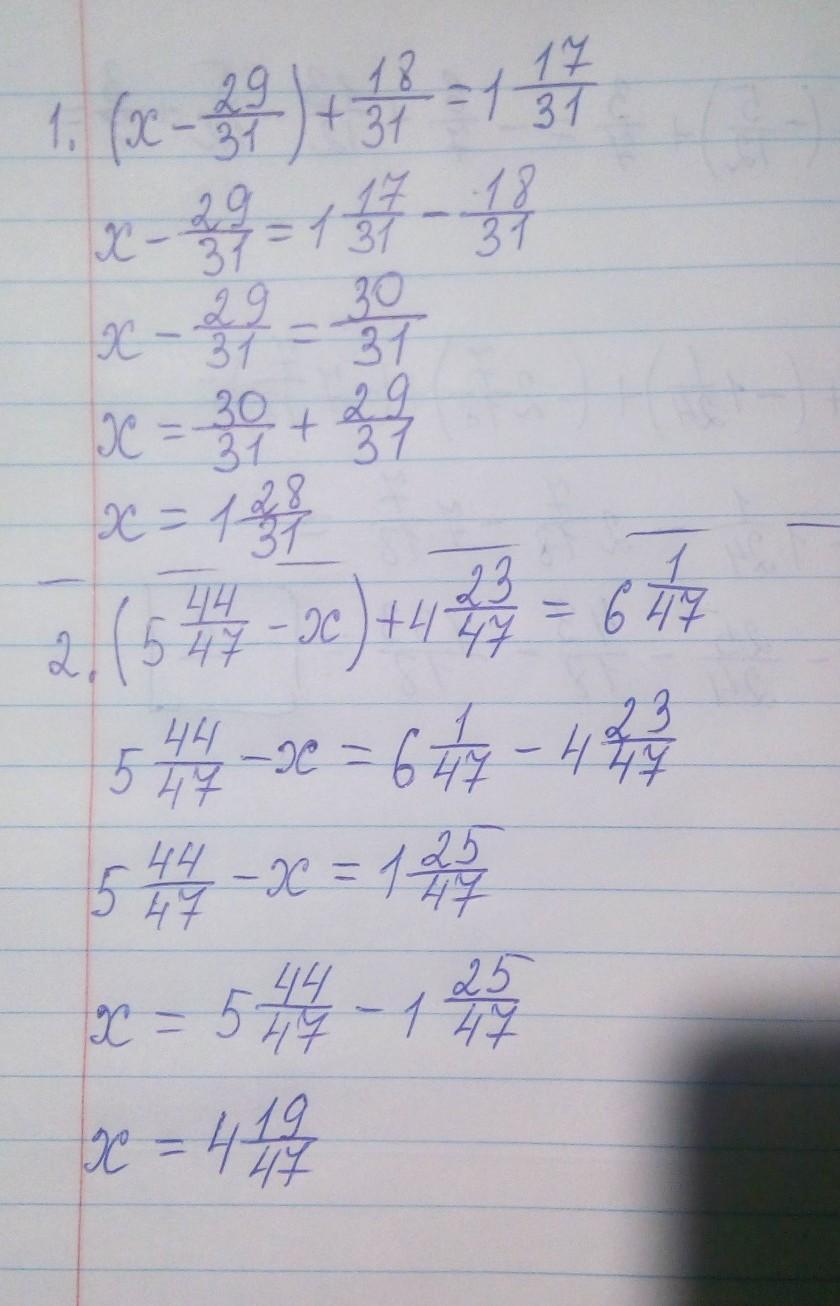 1. (x - 29/31) + 18/31 = 1 17/31
x - 29/31 = 1 17/31 - 18/31
x - 29/31 = 30/31
x = 30/31 + 29/31
x = 1 28/31
2. (5 44/47 - x) + 4 23/47 = 6 1/47
5 44/47 - x = 6 1/47 - 4 23/47
5 44/47 - x = 1 25/47
x = 5 44/47 - 1 25/47
x = 4 19/47